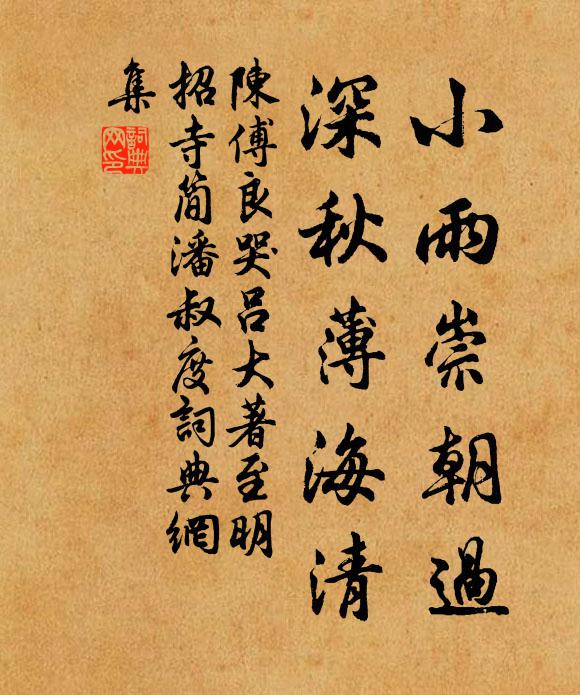 小雨崇朝過
深秋薄海清
陳傅良哭呂大著至明
招寺簡潘叔度詞典網
集
詞典网印